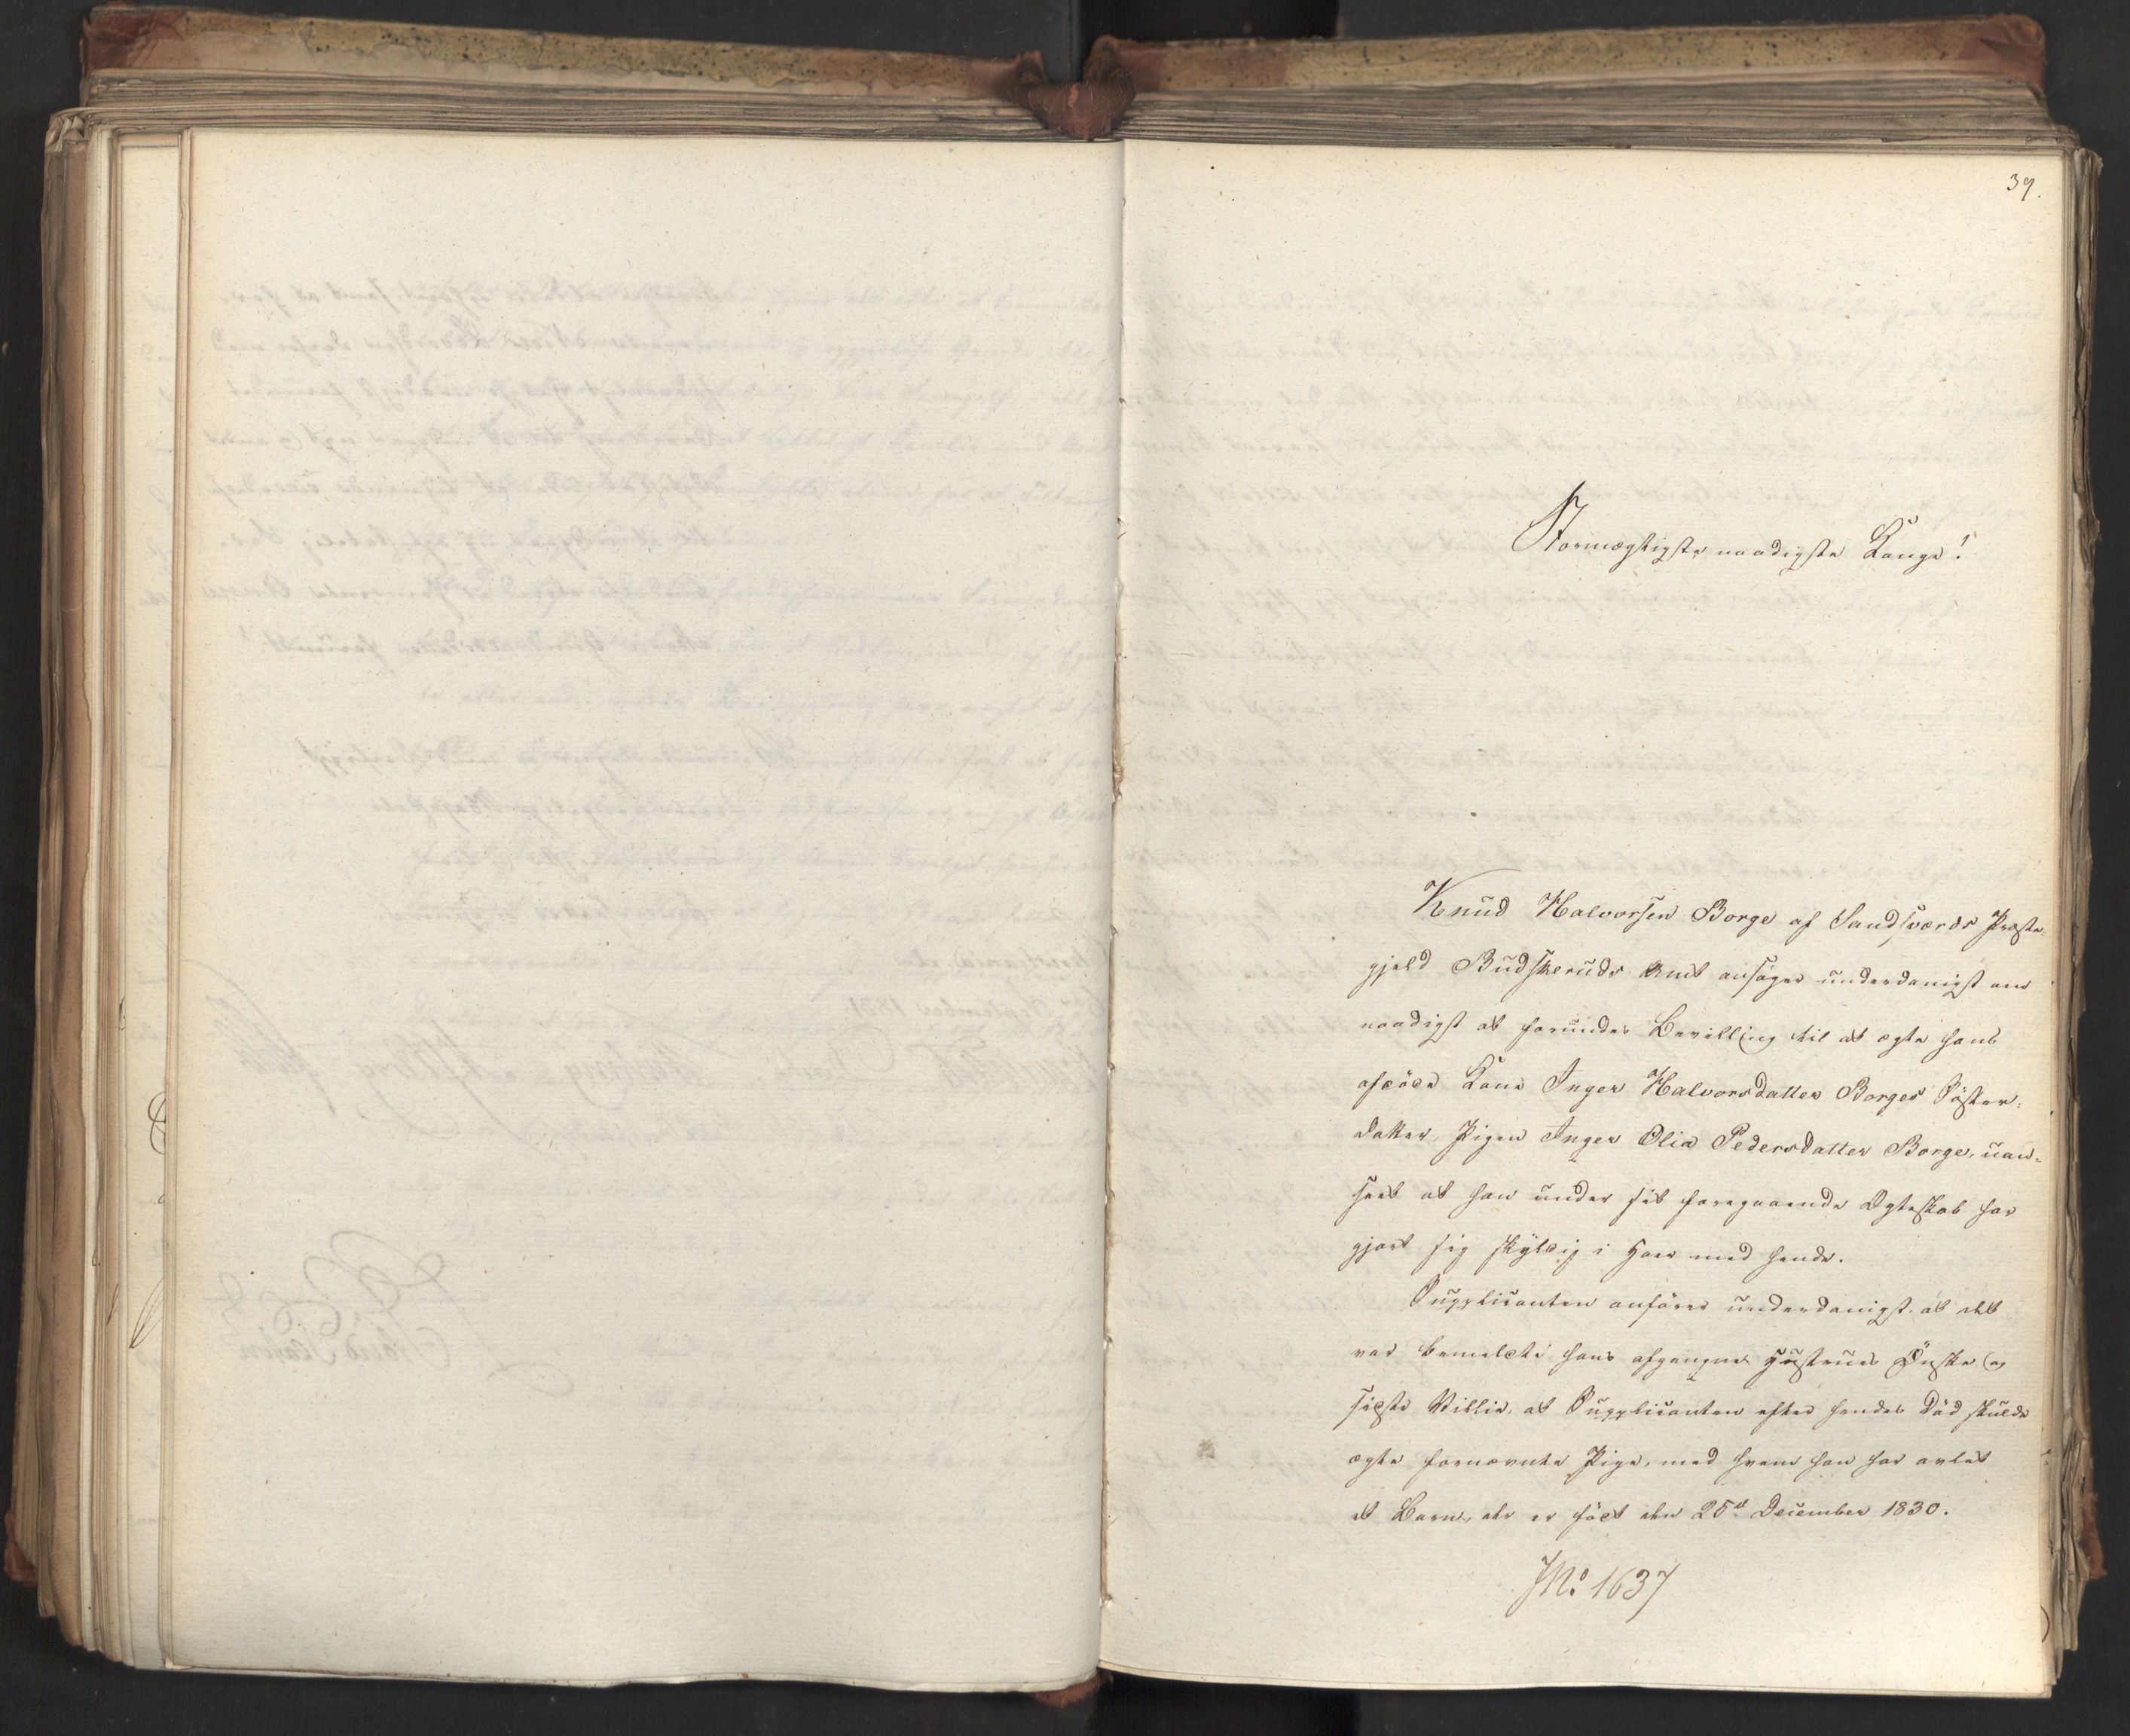 39.
Stormægtigste naadigste Konge!
Knud Halvorsen Borge af Sandsværds Præste-
gjeld Budskeruds Amt ansøger underdanigst om
naadigst at forundes Bevilling til at ægte hans
afdøde Kone Inger Halvorsdatter Borges Söster-
datter, Pigen Inger Olia Pedersdatter Borge, uan-
seet at han under sit foregaaende Ægteskab har
gjort sig skyldig i Hoer med hende.
Supplicanten anförer underdanigst, at det
var bemeldte hans afgangne Hustrues Önske og
sidste Villie, at Supplicanten efter hendes Död skulde
ægte fornævnte Pige, med hvem han har avlet
et Barn, der er födt den 25de December 1830.
JNo 1637